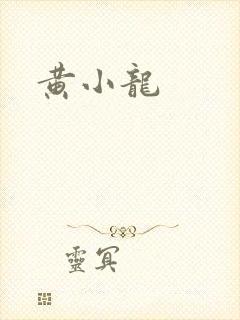 黄小龍
靈冥